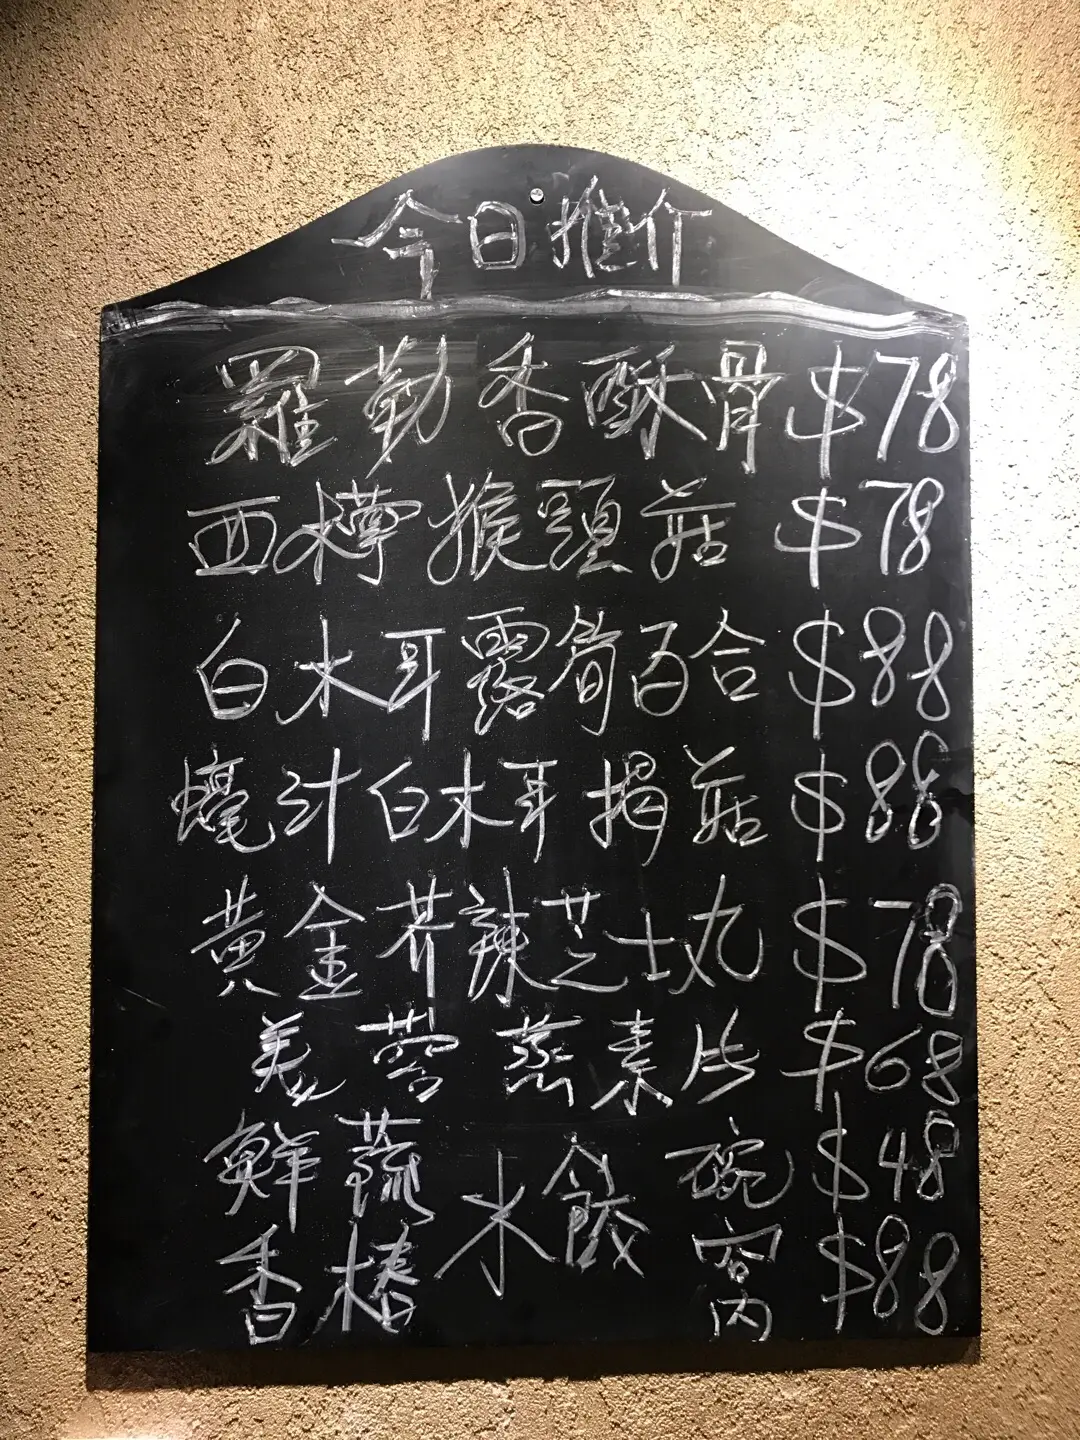 今日推介
羅勒香酥骨 $78
西檸猴頭菇 $78
白木耳露筍百合 $88
蠔汁白木耳掲菇 $88
黄金芥辣芝士丸 $78
美蓉蒸素 $68
鮮蔬 水餃 碗 $48
香椿 窩 $88